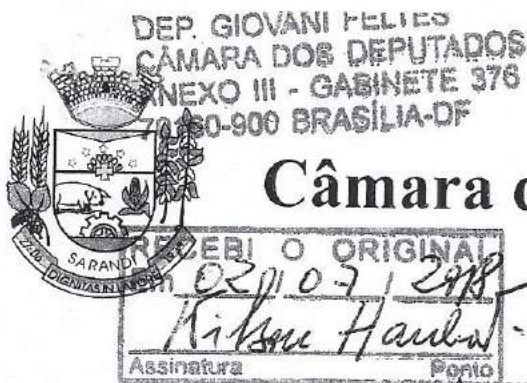 DEP. GIOVANI FELTES
CÂMARA DOS DEPUTADOS
ANEXO III - GABINETE 376
70160-900 BRASÍLIA-DF
Câmara d
SARANDI
DIGNITAS IN LABORE
RECEBI O ORIGINAL
Em 02/07/2018
Assinatura Ponto